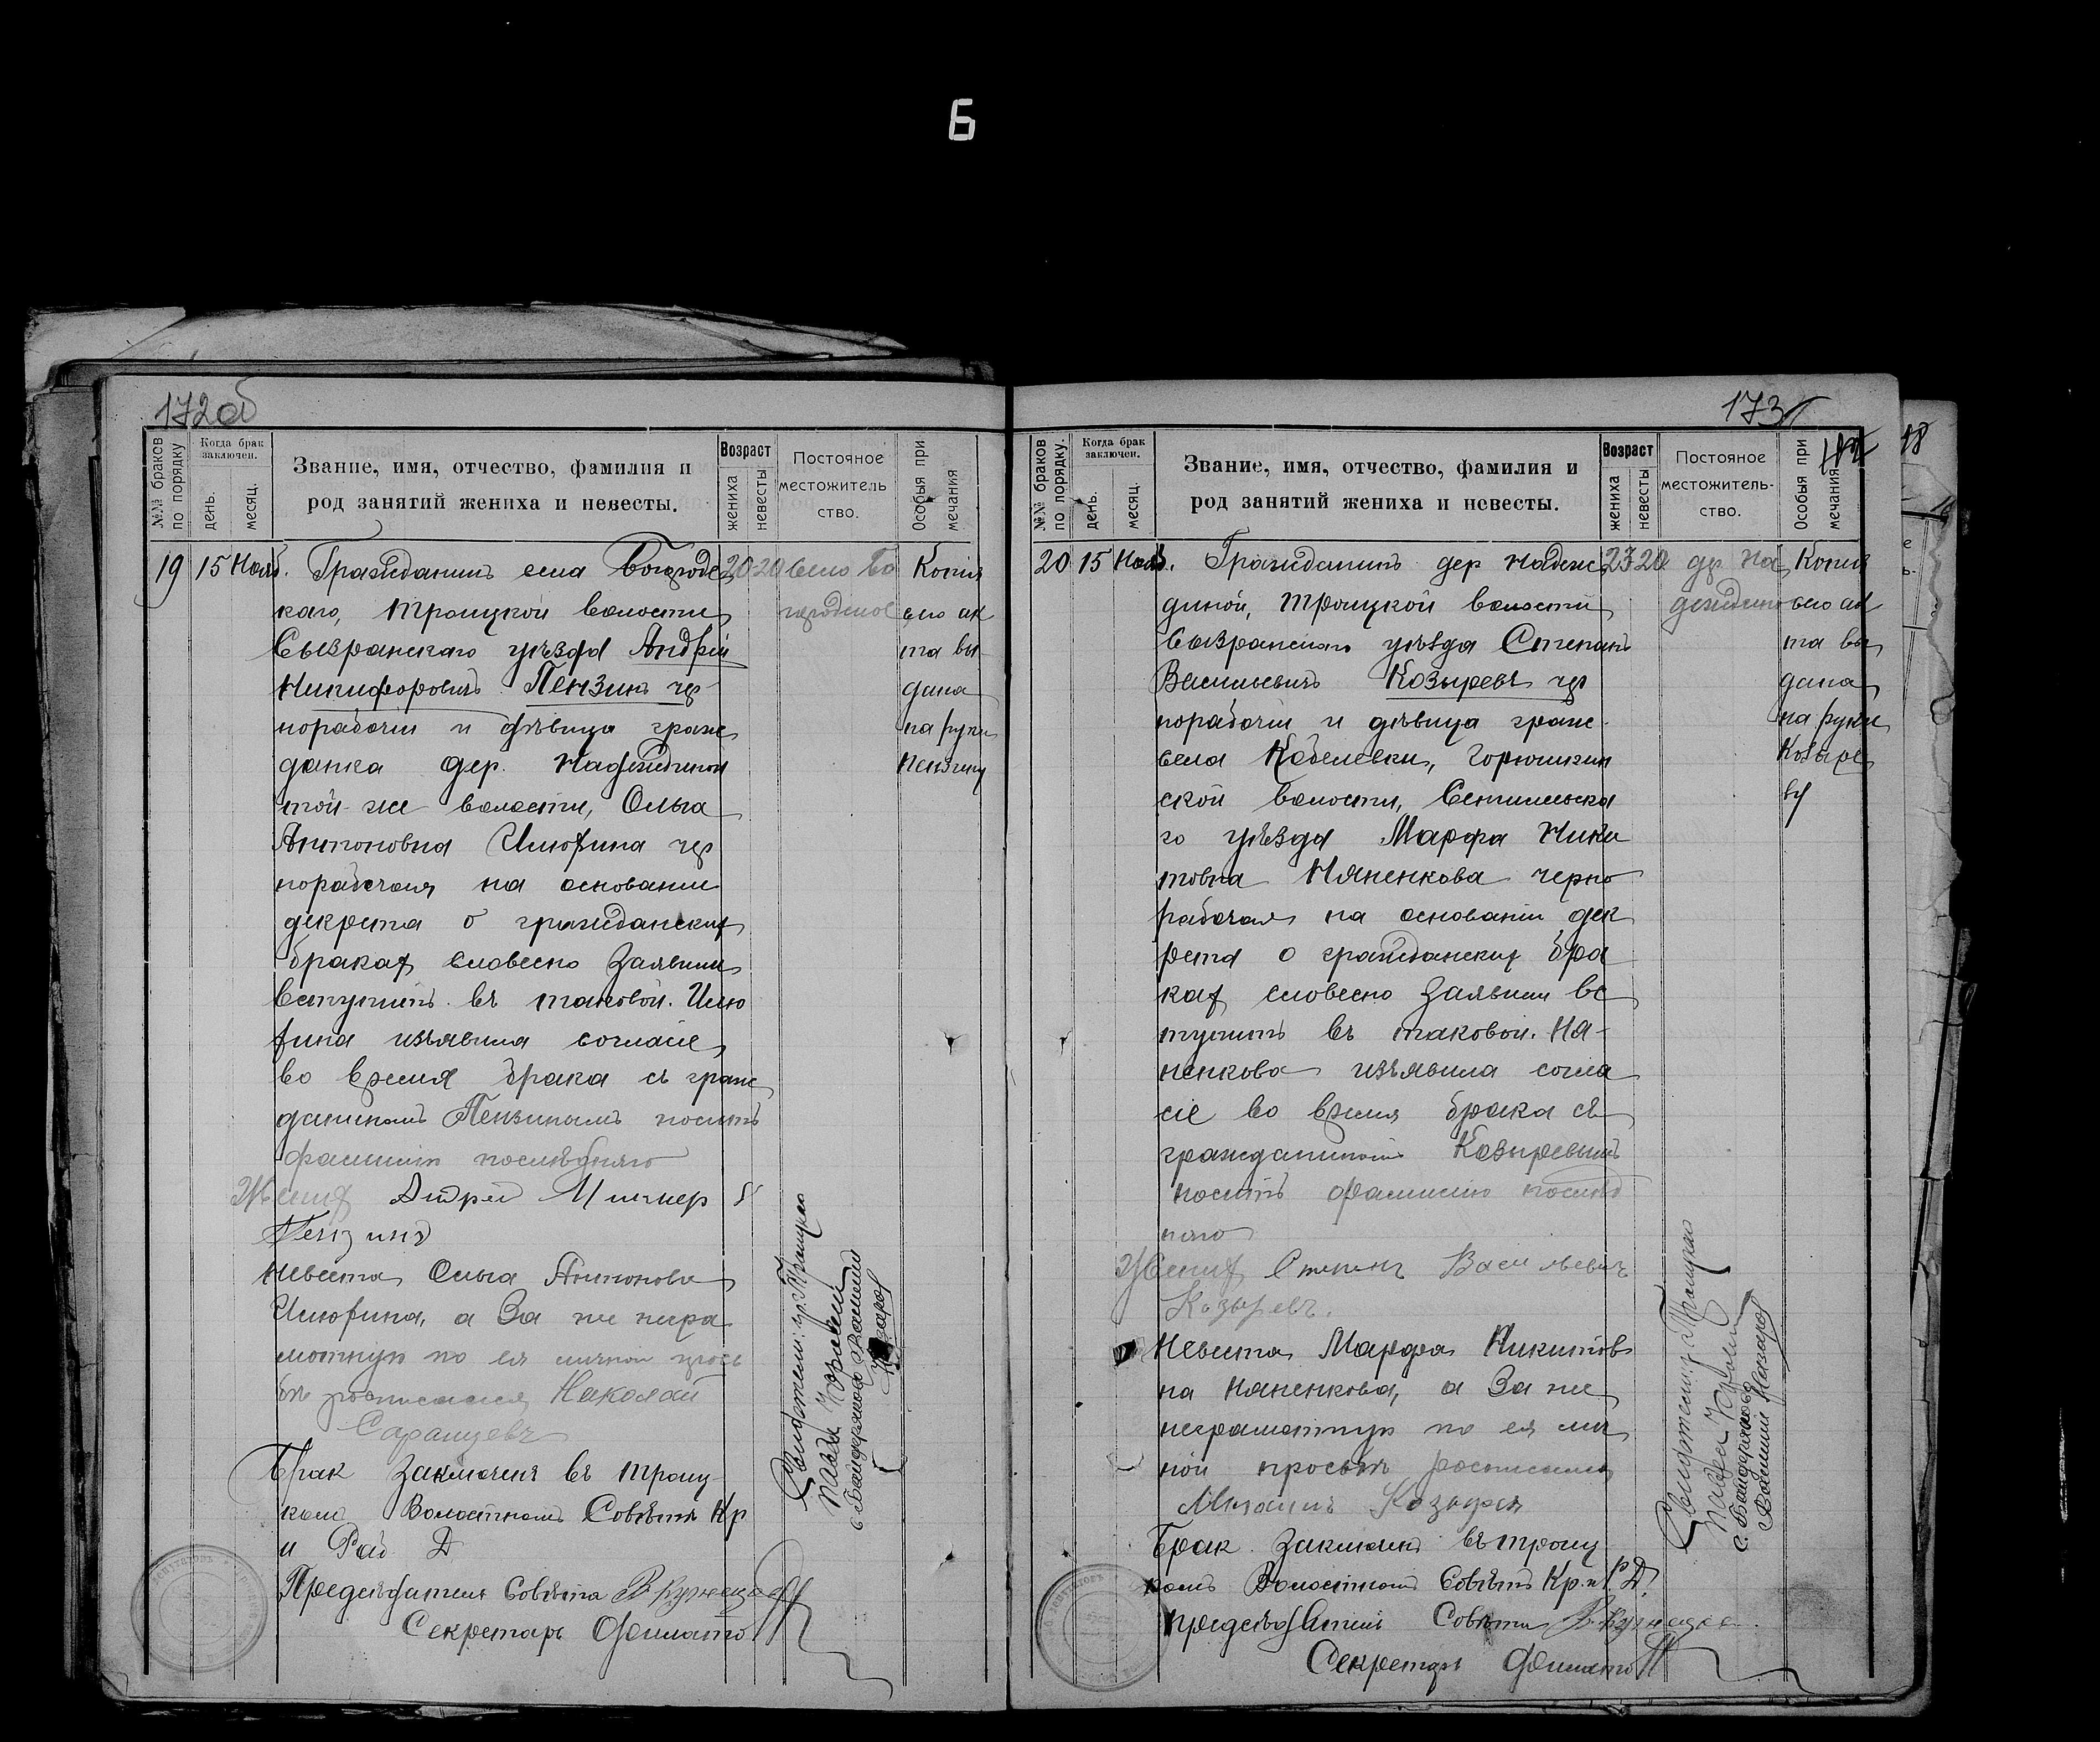 Б
172об
№№ браков по порядку
Когда брак заключен.
день.
месяц.
Звание, имя, отчество, фамилия и
род занятий жениха и невесты.
Возраст
жениха
невесты
Постояное
местожитель
ство.
Особыя при
мечания
19 15 Нояб. Гражданинъ села Богородс 20 20 село Бо Копия
каго, Троицкой волости городское сего ак
Сызранскаго уѣзда Андрей та вы
Никифоровичъ Пензинъ чер дана
норабочій и дѣвица граж на руки
данка дер. Надеждиной Пензину
той-же волости, Ольга
Антоновна Илюхина чер
норабочая на основании
декрета о гражданских
браках словесно заявили
вступить въ таковой. Илю
хина изъявила согласіе
во время брака съ граж
даниномъ Пензинымъ носить
фамилію послѣдняго
Жених Андрей
Пензинъ
Невеста Ольга Антоновна
Илюхина, а За не негра
мотную по ея личной прось
бѣ росписался Николай
Саранцевъ
Брак заключенъ въ Троиц
комъ Волостномъ Совѣтѣ Кр
и Раб. Д
Председатель Совѣта В. Кузнецов
Секретарь
Свидѣтели: гр. Троицкаго
Павел
с. Байдерякова Василий
Назаров
173
№№ браков по порядку.
Когда брак заключен.
день.
месяц.
Звание, имя, отчество, фамилия и
род занятий жениха и невесты.
Возраст
жениха
невесты
Постояное
местожитель-
ство.
Особыя при
мечания
18
20 15 Нояб. Гражданинъ дер Надеж 23 20 др. На Копия
диной, Троицкой волости деждино сего ак
Сызранскаго уѣзда Степанъ та вы
Васильевичъ Козыревъ чер дана
норабочій и дѣвица граж. на руки
села Кобелевки, Горюшкин Козыре
ской волости, Сенгилеевска ву
го уѣзда Марфа Ники
товна Няненкова черно
рабочая на основаніи дек
рета о гражданских бра
ках словесно заявили вс
тупить въ таковой. Ня-
ненкова изъявила согла
сіе во время брака съ
гражданиномъ Козыревымъ
носить фамилію послѣд
няго
Жених Степанъ Васильевичъ
Козыревъ.
Невеста Марфа Никитов
на Няненкова, а За не
неграмотную по ея лич
ной просьбѣ росписался
Михаилъ Козырев
Брак заключенъ въ Троиц
комъ Волостномъ Совѣтѣ Кр. и Р. Д.
Председатель Совѣта В. Кузнецов
Секретарь
Свидѣтели: гр. Троицкаго
Павел
с. Байдерякова
Василий Назаров